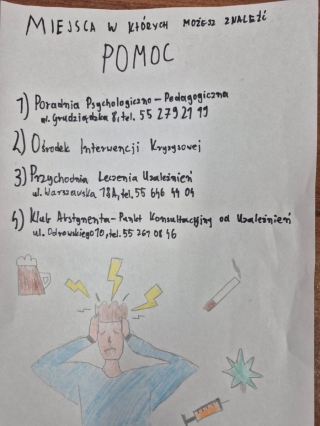 MIEJSCA W KTÓRYCH MOŻESZ ZNALEŹĆ
POMOC
1) Poradnia Psychologiczno-Pedagogiczna
ul. Grudziądzka 8, tel. 55 279 21 99
2) Ośrodek Interwencji Kryzysowej
3) Przychodnia Leczenia Uzależnień
ul. Warszawska 18A, tel. 55 646 44 04
4) Klub Abstynenta - Punkt Konsultacyjny od Uzależnień
ul. Odrowskiego 10, tel. 55 261 08 46